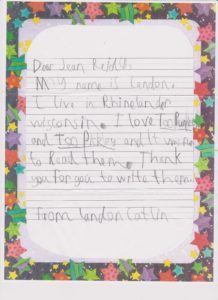 Dear Jean Reidy,
My name is Landon.
I live in Rhinelander
wisconsin. I love
and and
to Read them. Thank
you for you to write them.
From Landon Catlin